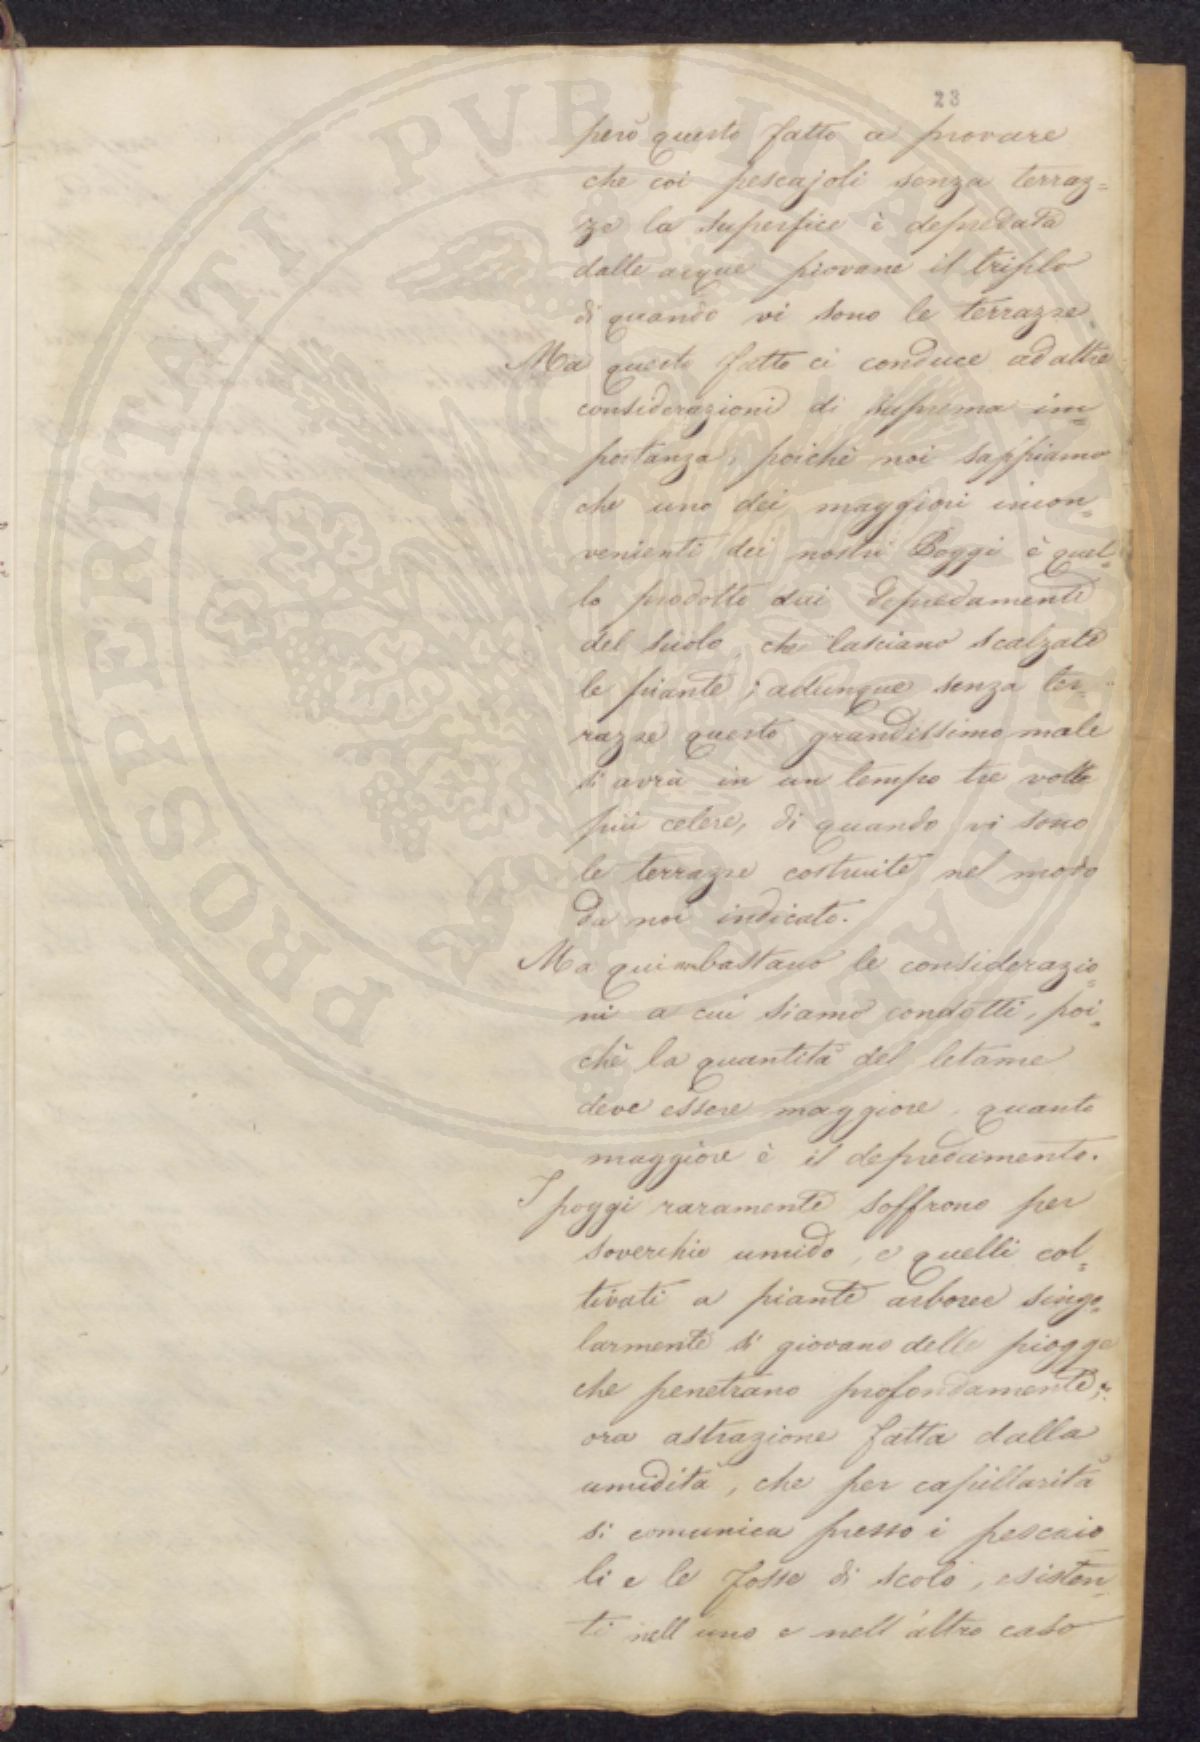 23
però questo fatto a provare
che coi pescajoli senza terraz=
ze la superfice è depredata
dalle acque piovane il triplo
di quando vi sono le terrazze.
Ma questo fatto ci conduce ad altre
considerazioni di suprema im=
portanza, poichè noi sappiamo
che uno dei maggiori incon=
venienti dei nostri Poggi è quel=
lo prodotto dai depredamenti
del suolo, che lasciano scalzate
le piante; adunque senza ter=
razze questo grandissimo male
si avrà in un tempo tre volte
più celere, di quando vi sono
le terrazze costruite nel modo
da noi indicato.
Ma qui non bastano le considerazio=
ni a cui siamo condotti, poi=
chè la quantità del letame
deve essere maggiore, quanto
maggiore è il depredamento.
I poggi raramente soffrono per
soverchio umido, e quelli col=
tivati a piante arboree singo=
larmente si giovano delle piogge
che penetrano profondamente;
ora astrazione fatta dalla
umidità, che per capillarità
si comunica presso i pescaio=
li e le fosse di scolo, esisten=
ti nell uno e nell'altro caso
PROSPERITATI PVBLICAE